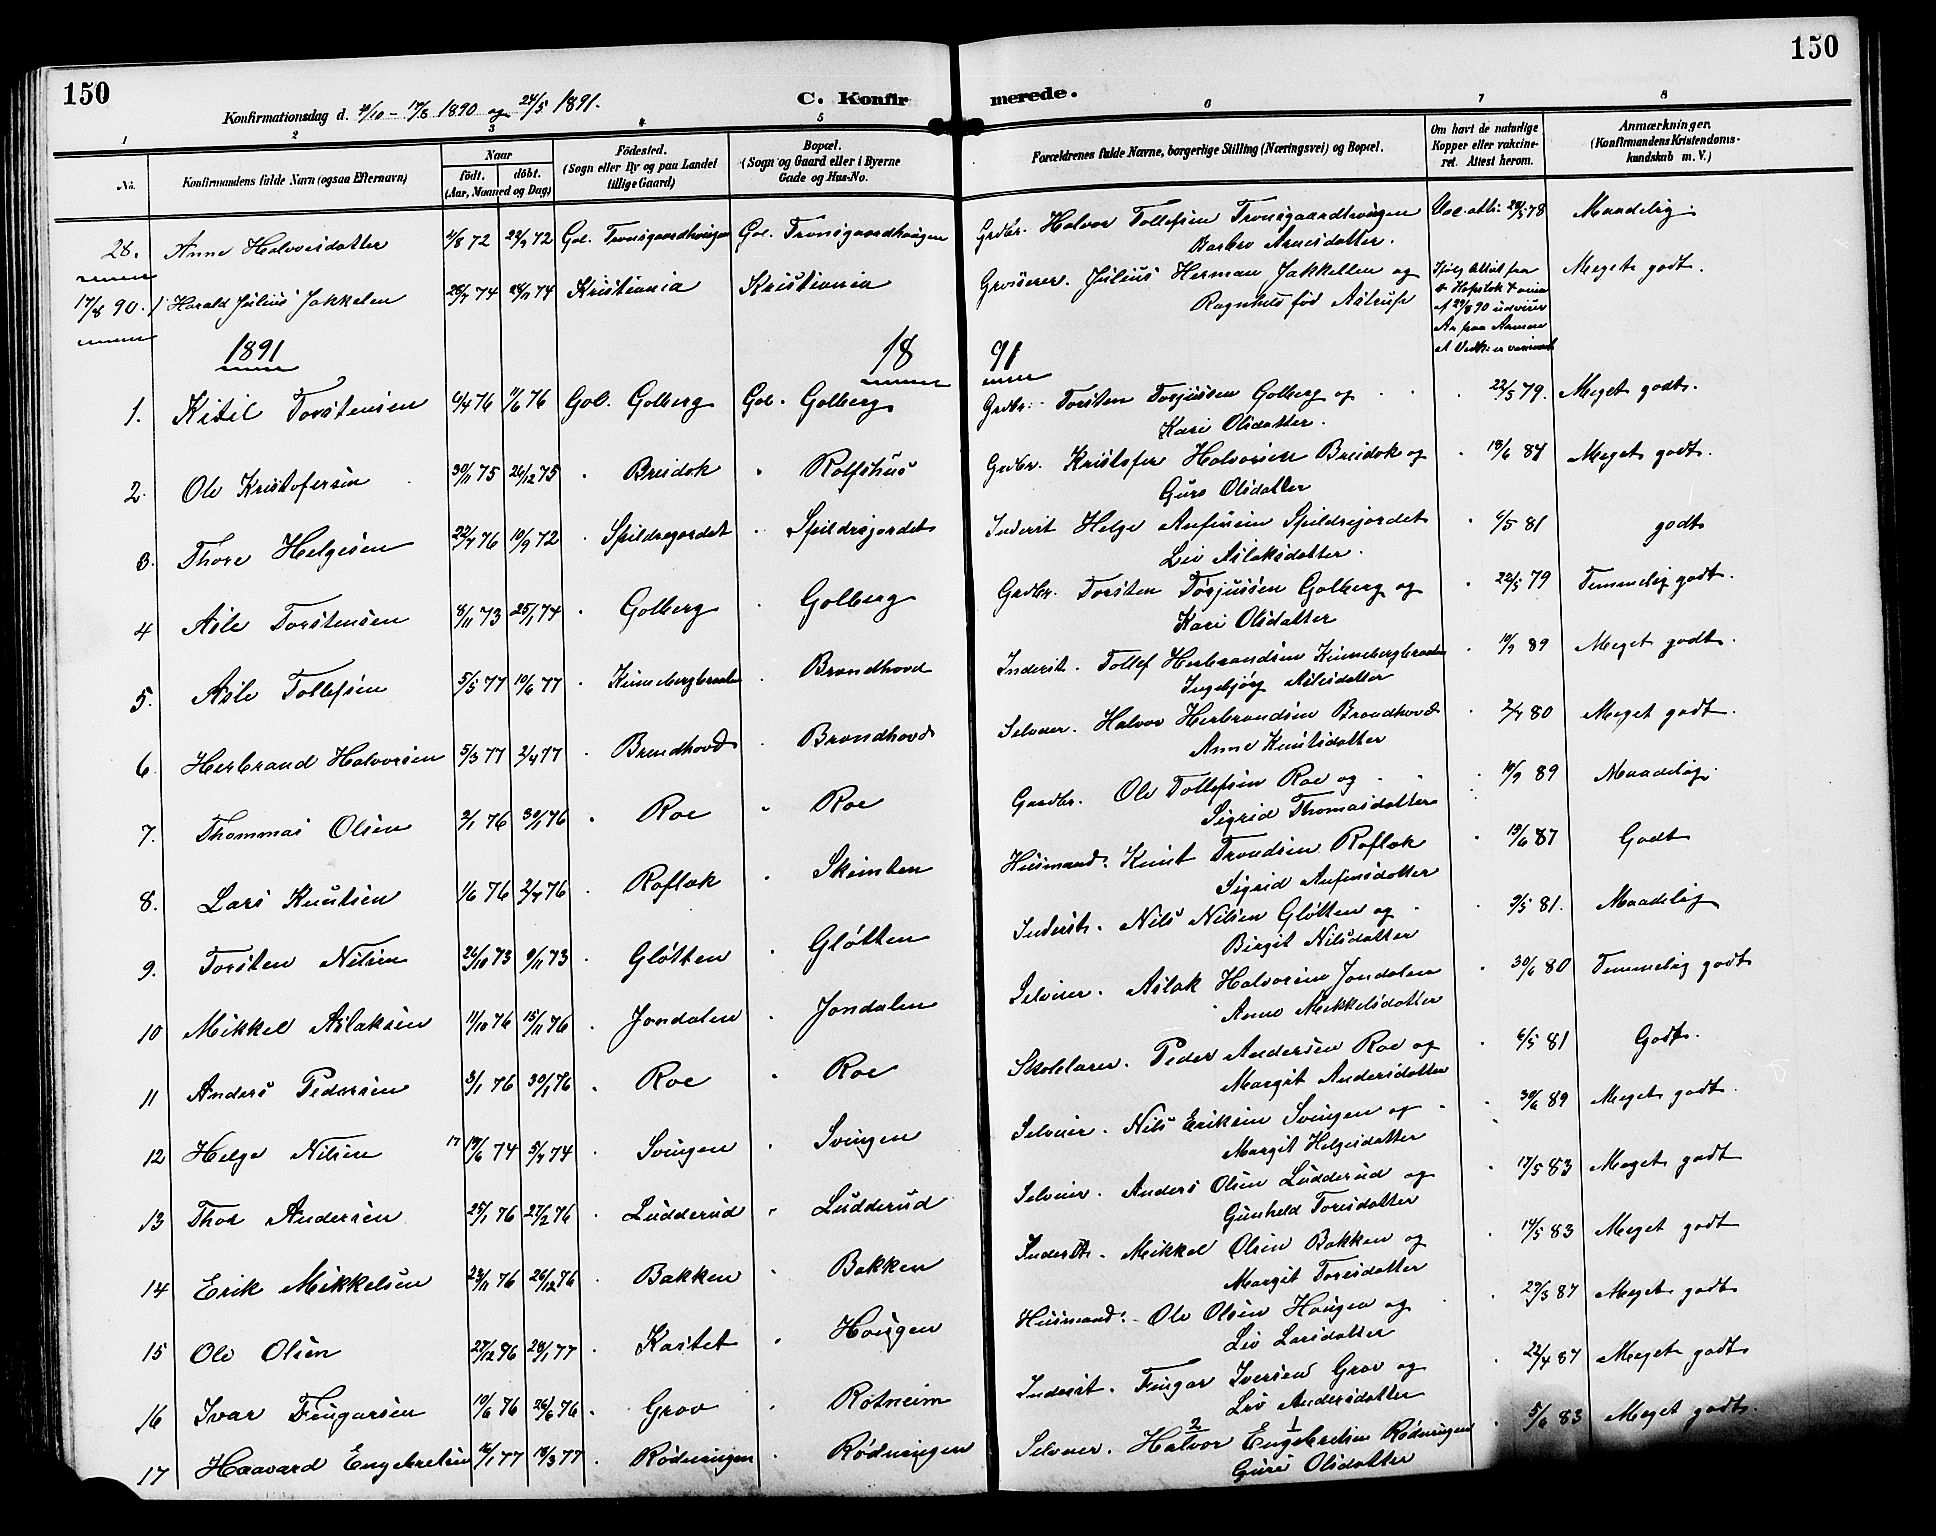 150
150
Konfirmationsdag d. 17/8 1890 og 24/5 1891.
C. Konfir
merede.
1 2 3 4 5 6 7 8
No. Konfirmandens fulde Navn (ogsaa Efternavn) Naar født. døbt. (Aar, Maaned og Dag) Fødested. (Sogn eller By og paa Landet tillige Gaard) Bopæl. (Sogn og Gaard eller i Byerne Gade og Hus-No. Forældrenes fulde Navne, borgerlige Stilling (Næringsvei) og Bopæl. Om havt de naturlige Kopper eller vakcineret. Attest herom. Anmærkninger. (Konfirmandens Kristendomskundskab m. V.)
28. Anne Halvorsdatter 72 72 Gol. Gol. Grdbr. Halvor Tollefsen 78 Maadelig.
Barbro Arnesdatter.
17/8 90. 1 Harald Julius Jakkelen 74 74 Kristiania Kristiania Grosserer. Julius Herman Jakkellen og Meget godt.
født Astrup
1891
18 91
1. Kitil Torstensen 76 76 Gol. Golberg Gol. Golberg Grdbr. Torsten Torjussen Golberg og 22/5 79. Meget godt.
Kari Olsdatter.
2. Ole Kristofersen 30/11 75 26/12 75 Breidok Rolfshus Grdbr. Kristofer Halvorsen Breidok og 84 Meget godt.
Guro Olsdatter
3. Thore Helgesen 76 10/9 72 Inderst Helge 81 godt
Liv Aslaksdatter.
4 Asle Torstensen 8/11 73 25/1 74 Golberg Golberg Grdbr. Torsten Torjussen Golberg og 22/5 79 Temmelig godt.
Kari Olsdatter
5. Asle Tollefsen 5/5 77 10/6 77 Brandhovd Inderst. Tollef Herbrandsen 89 Meget godt.
Ingebjørg Aslesdatter
6 Herbrand Halvorsen 5/3 77 2/4 77 Brendhovd Brandhovd Selveier. Halvor Herbrandsen Brandhovd 80 Meget godt.
Anne Knutsdatter
7. Thommas Olsen 76 30/1 76 Roe Roe Gaardbr. Ole Tollefsen Roe og 10/9 89 Maadelig.
Sigrid Thomasdatter
8. Lars Knutsen 1/6 76 2/7 76 Roflok Husmand. Knut Trondsen Roflok 87 Godt
Sigrid Anfinsdatter
9. Torsten Nilsen 26/10 73 9/11 73 Gløtten Gløtten Inderst. Nils Nilsen Gløtten og 81. Maadelig
Birgit Nilsdatter
10 Mikkel Aslaksen 11/10 76 15/11 76 Jondalen Jondalen Selveier. Aslak Halvorsen Jondalen 30/6 80 Temmelig godt
Anne Mekkelsdatter
11 Anders Pedersen 3/1 76 30/1 76 Roe Roe Skolelærer. Peder Andersen Roe og 6/5 81 Godt.
Margit Andersdatter
12 Helge Nilsen 74 5/7 74 Svingen Svingen Selveier. Nils Eriksen Svingen og 30/6 89 Meget godt.
Margit Helgesdatter
13 Thor Andersen 25/1 76 27/2 76 Ludderud Ludderud Selveier. Anders Olsen Ludderud og 17/5 83 Meget godt
Gunheld Toresdatter
14 Erik Mikkelsen 23/11 76 26/12 76 Bakken Bakken Inderst. Mikkel Olsen Bakken og 14/5 83 Meget godt
Margit Toresdatter
15 Ole Olsen 27/12 76 28/1 77 Kastet Haugen Husmand. Ole Olsen Haugen og 29/3 87 Meget godt
Liv Larsdatter
16 Ivar Fingarsen 10/6 76 26/6 76 Grov Rotneim Inderst. Fingar Iversen Grov og 22/4 87 Meget godt
Liv Andersdatter
17 Haavard Engebretsen 77 18/3 77 Rødningen Rødningen Selveier. 2 Halvor 1 Engebretsen Rødningen 5/6 83 Meget godt.
Guri Olsdatter